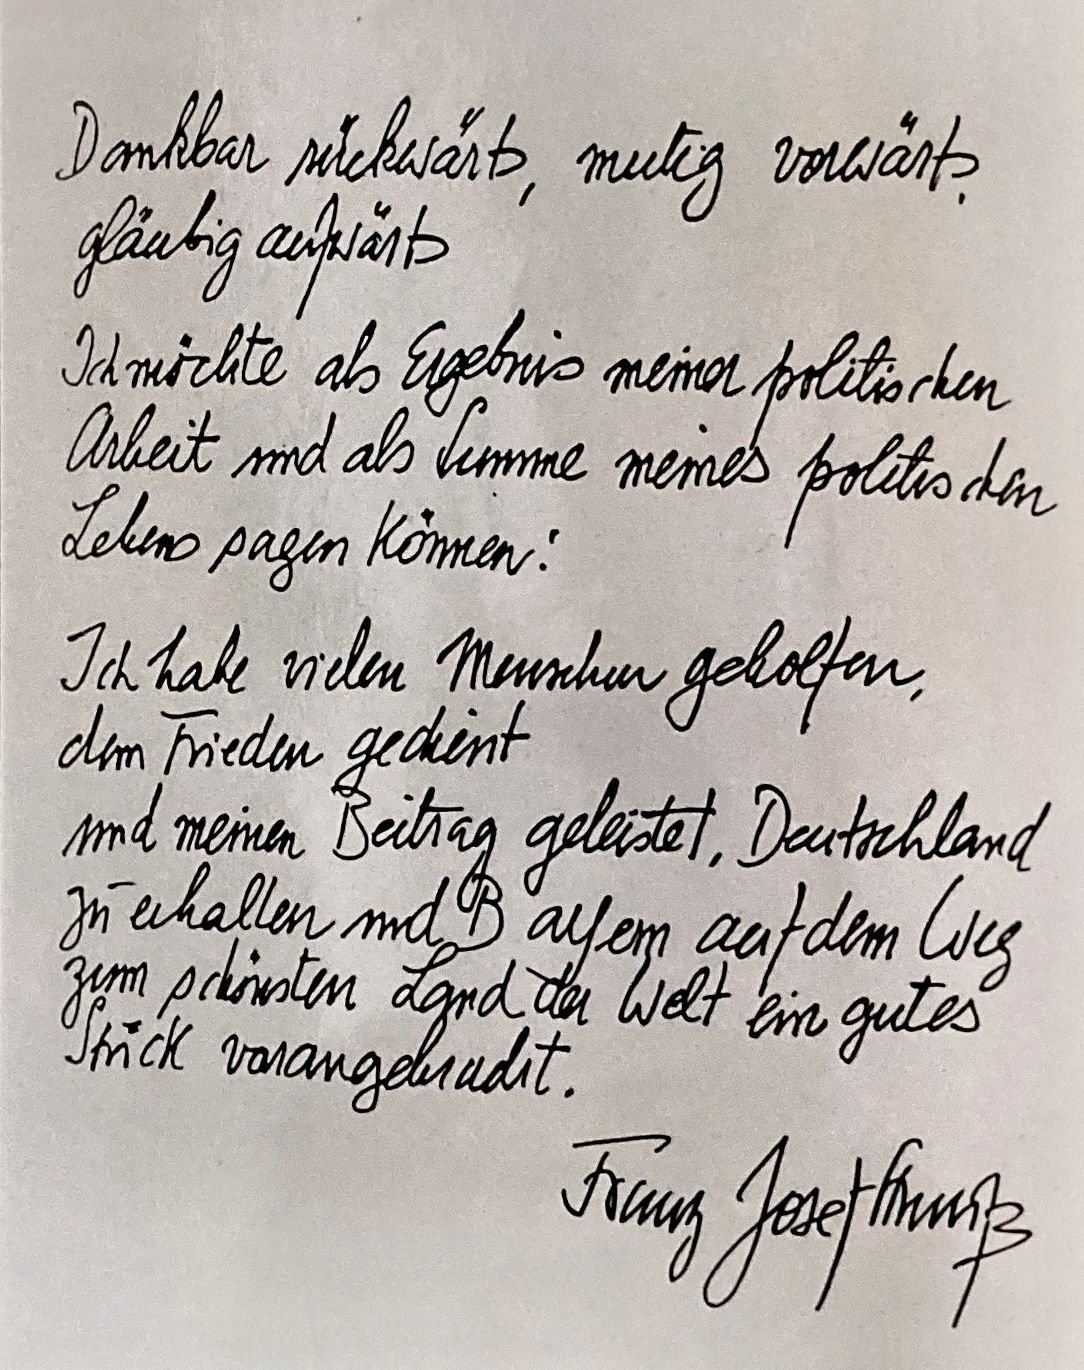 Dankbar rückwärts, mutig vorwärts,
gläubig aufwärts
Ich möchte als Ergebnis meiner politischen
Arbeit und als Summe meines politischen
Lebens sagen können:
Ich habe vielen Menschen geholfen,
dem Frieden gedient
und meinen Beitrag geleistet, Deutschland
zu erhalten und Bayern auf dem Weg
zum schönsten Land der Welt ein gutes
Stück vorangebracht.
Franz Josef Strauß